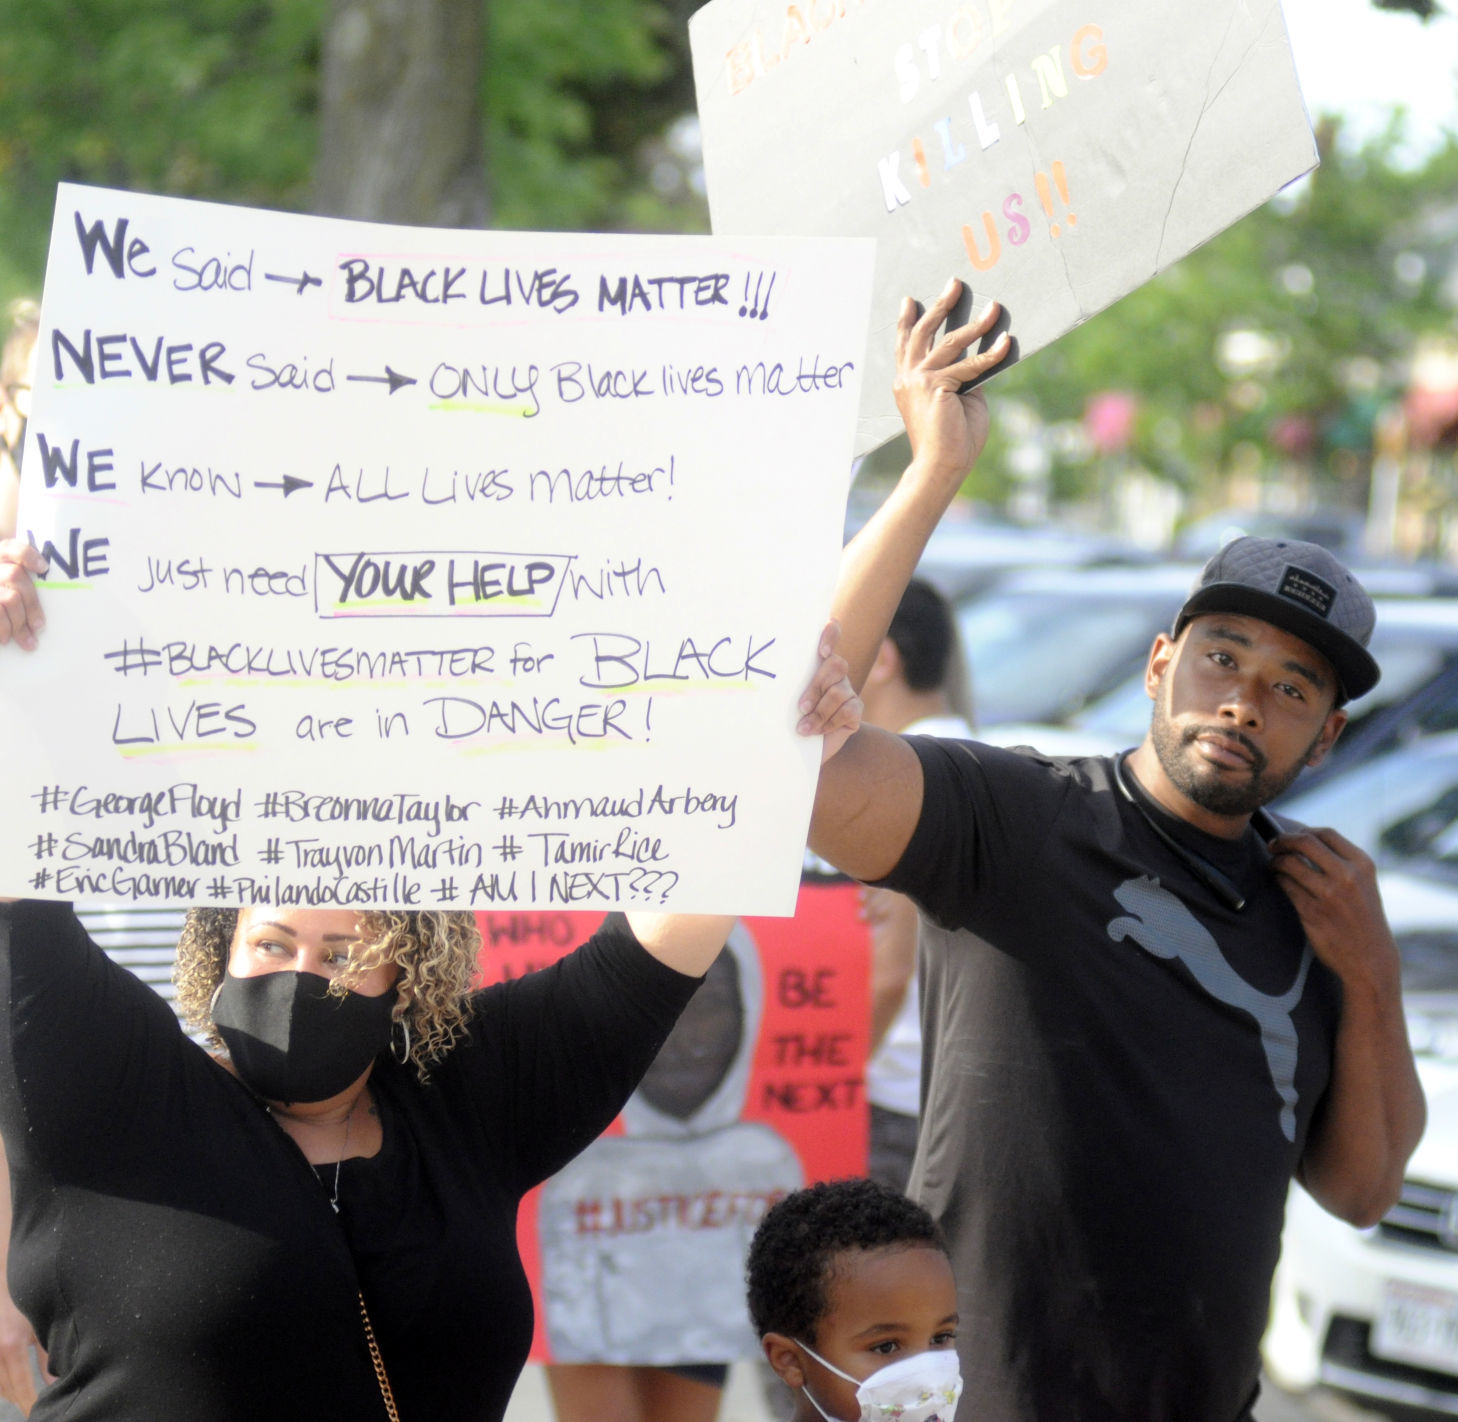 We Said → BLACK LIVES MATTER!!!
NEVER Said → ONLY Black lives matter
WE know → ALL Lives matter!
WE just need YOUR HELP with
#BLACKLIVESMATTER for BLACK
LIVES are in DANGER!
#GeorgeFloyd #BreonnaTaylor #AhmaudArbery
#SandraBland #TrayvonMartin # TamirRice
#EricGarner #PhilandoCastille # AM I NEXT???
STOP
KILLING
US!!
WHO
BE
THE
NEXT